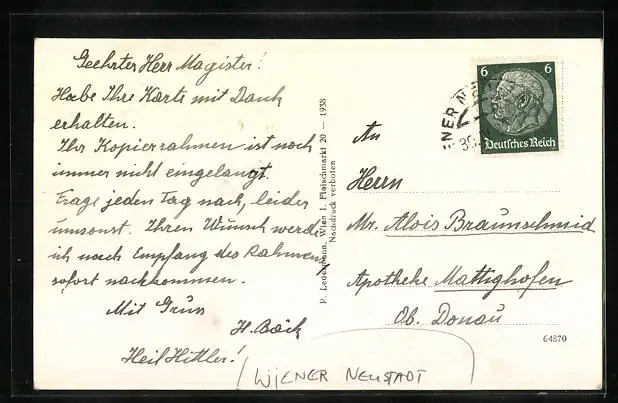 Geehrter Herr Magister!
Habe Ihre Karte mit Dank
erhalten.
Ihr Kopierrahmen ist noch
immer nicht eingelangt.
Frage jeden Tag nach, leider
umsonst. Ihren Wunsch werde
ich nach Empfang des Rahmens
sofort nachkommen.
Mit Gruss
H. Böck
Heil Hitler!
(WIENER NEUSTADT
P. Ledermann, Wien I. Fleischmarkt 20 — 1938
Nachdruck verboten
6 6
Deutsches Reich
ENER N
30.
An
Herrn
Mr. Alois Braunschmid
Apotheke Mattighofen
Ob. Donau
64870